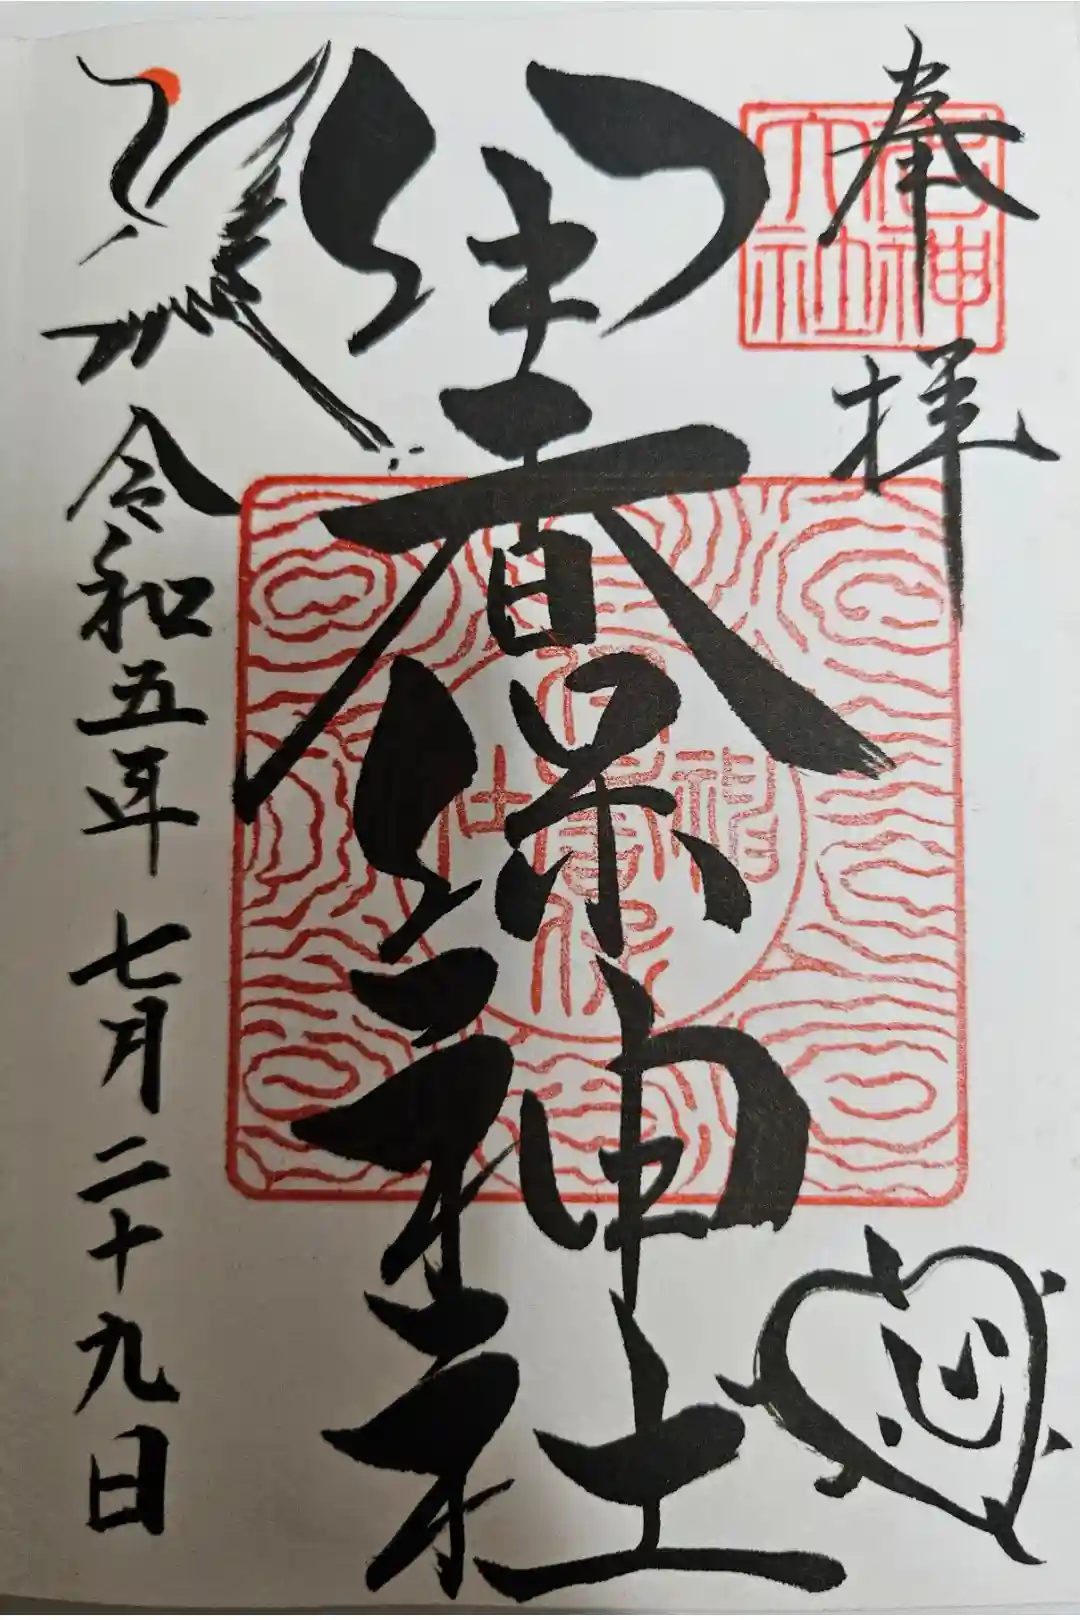 奉拝
御香保神社
令和五年七月二十九日